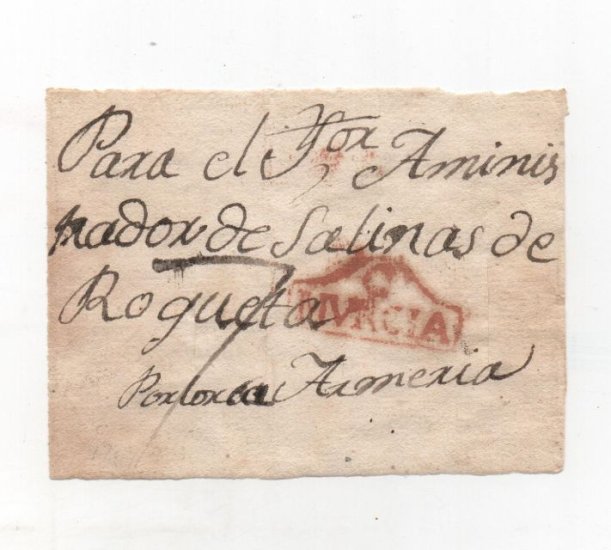 Para el Sor Aminis
trador de Salinas de
Roqueta
MVRCIA
Porlorca Armeria